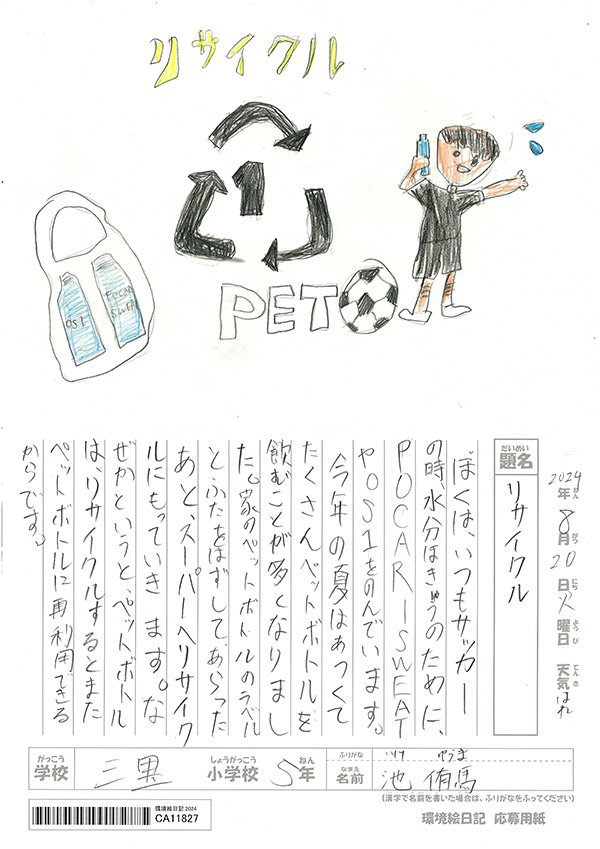 リサイクル
1
PET
OS1
POCARI
SWEAT
だいめい
題名
リサイクル
2024年8月20日火曜日 天気はれ
ねん がつ にち ようび てんき
ぼくは、いつもサッカー
の時、水分ほきゅうのために、
POCARISWEAT
やOS1をのんでいます。
今年の夏はあつくて
たくさんペットボトルを
飲むことが多くなりまし
た。家のペットボトルのラベル
とふたをはずしてあらった
あと、スーパーへリサイク
ルにもっていきます。な
ぜかというと、ペットボトル
は、リサイクルするとまた
ペットボトルに再利用できる
からです。
がっこう しょうがっこう ねん ふりがな いけ ゆうま
学校 三黒 小学校 5年 なまえ 名前 池 侑馬
(漢字で名前を書いた場合は、ふりがなをふってください)
環境絵日記2024
CA11827
環境絵日記 応募用紙